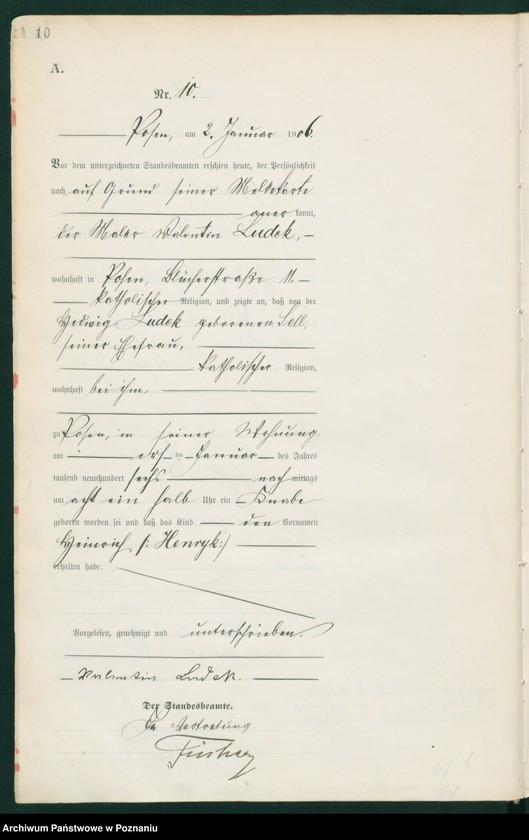 10
A.
Nr. 10.
Posen, am 2. Januar 1906.
Vor dem unterzeichneten Standesbeamten erschien heute, der Persönlichkeit
nach auf Grund seiner Meldekarte
aner kannt,
der Maler Valentin Ludek,
wohnhaft in Posen, Blücherstraße 11.
katholischer Religion, und zeigte an, daß von der
Hedwig Ludek geborenen Sell,
seiner Ehefrau,
katholischer Religion,
wohnhaft bei ihm,
zu Posen, in seiner Wohnung
am ersten Januar des Jahres
tausend neunhundert sechs nach mittags
um acht ein halb Uhr ein Knabe
geboren worden sei und daß das Kind den Vornamen
Heinrich /: Henryk :/
erhalten habe.
Vorgelesen, genehmigt und unterschrieben.
Valentin Ludek.
Der Standesbeamte.
In Vertretung.
Archiwum Państwowe w Poznaniu